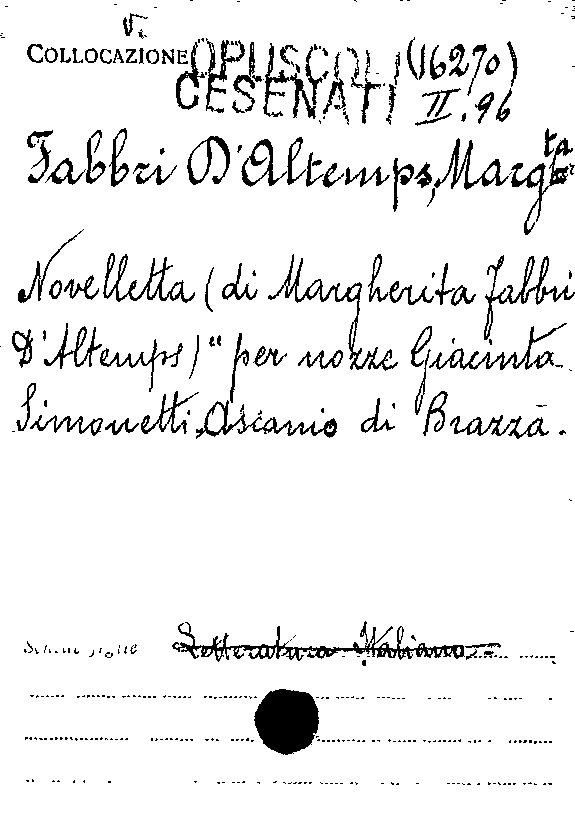 V.
COLLOCAZIONE OPUSCOLI (16270)
CESENATI II. 96
Fabbri D'Altemps, Marg.ta
Novelletta (di Margherita Fabbri
D'Altemps) " per nozze Giacinta
Simonetti, Ascanio di Brazzà.
Schede scritte Letteratura Italiana